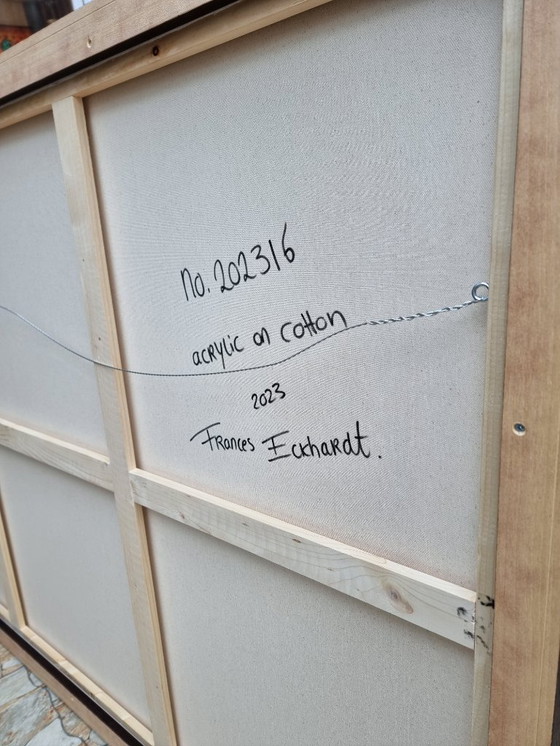 No. 202316
acrylic on cotton
2023
Frances Eckhardt.